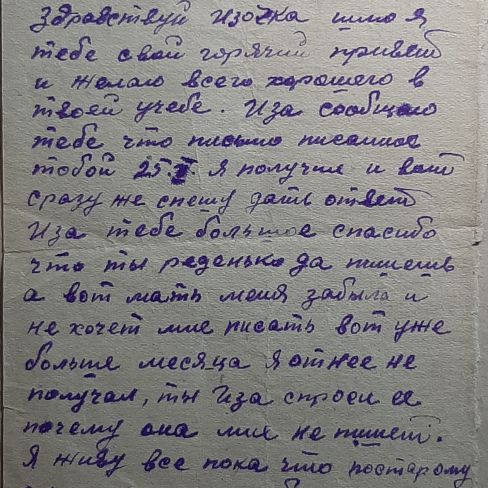 Здравствуй Изочка шлю я
тебе свой горячий привет
и желаю всего хорошего в
твоей учебе. Иза сообщаю
тебе что письмо писанное
тобой 25.I. я получил и вот
сразу же спешу дать ответ
Иза тебе большое спасибо
что ты реденько да пишешь
а вот мать меня забыла и
не хочет мне писать вот уже
больше месяца я от нее не
получал, ты Иза спроси ее
почему она мне не пишет.
Я живу все пока что постарому